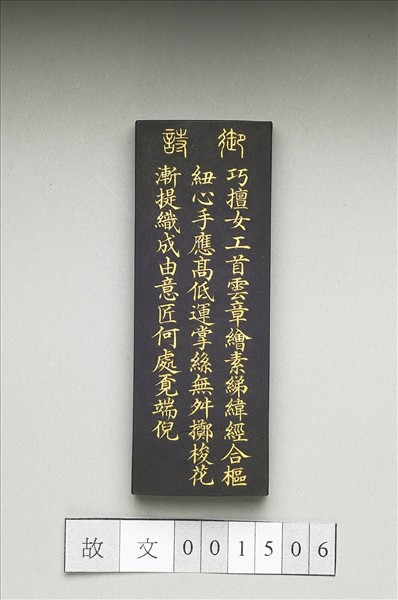 御詩
巧擅女工首雲章繪素綈緯經合樞
紐心手應髙低運掌絲無舛擲梭花
漸提織成由意匠何處覓端倪
故文001506